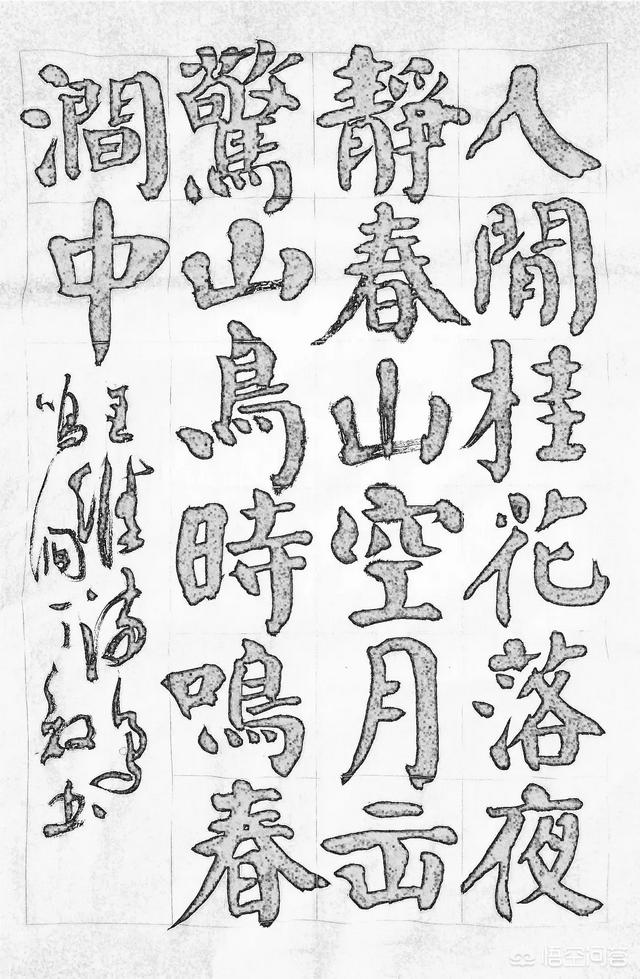 人閒桂花落夜
靜春山空月出
驚山鳥時鳴春
澗中
王維詩鳥
鳴澗
悟空问答